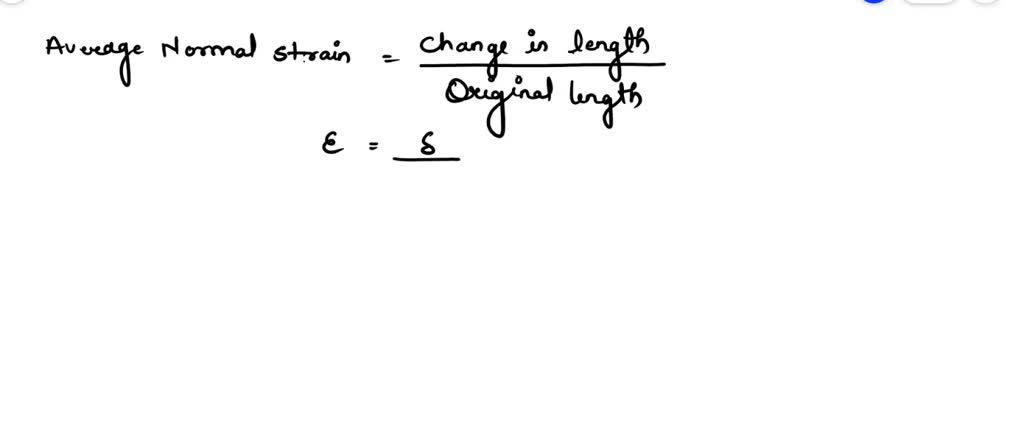 Average Normal strain = change in length
Original length
ε = δ